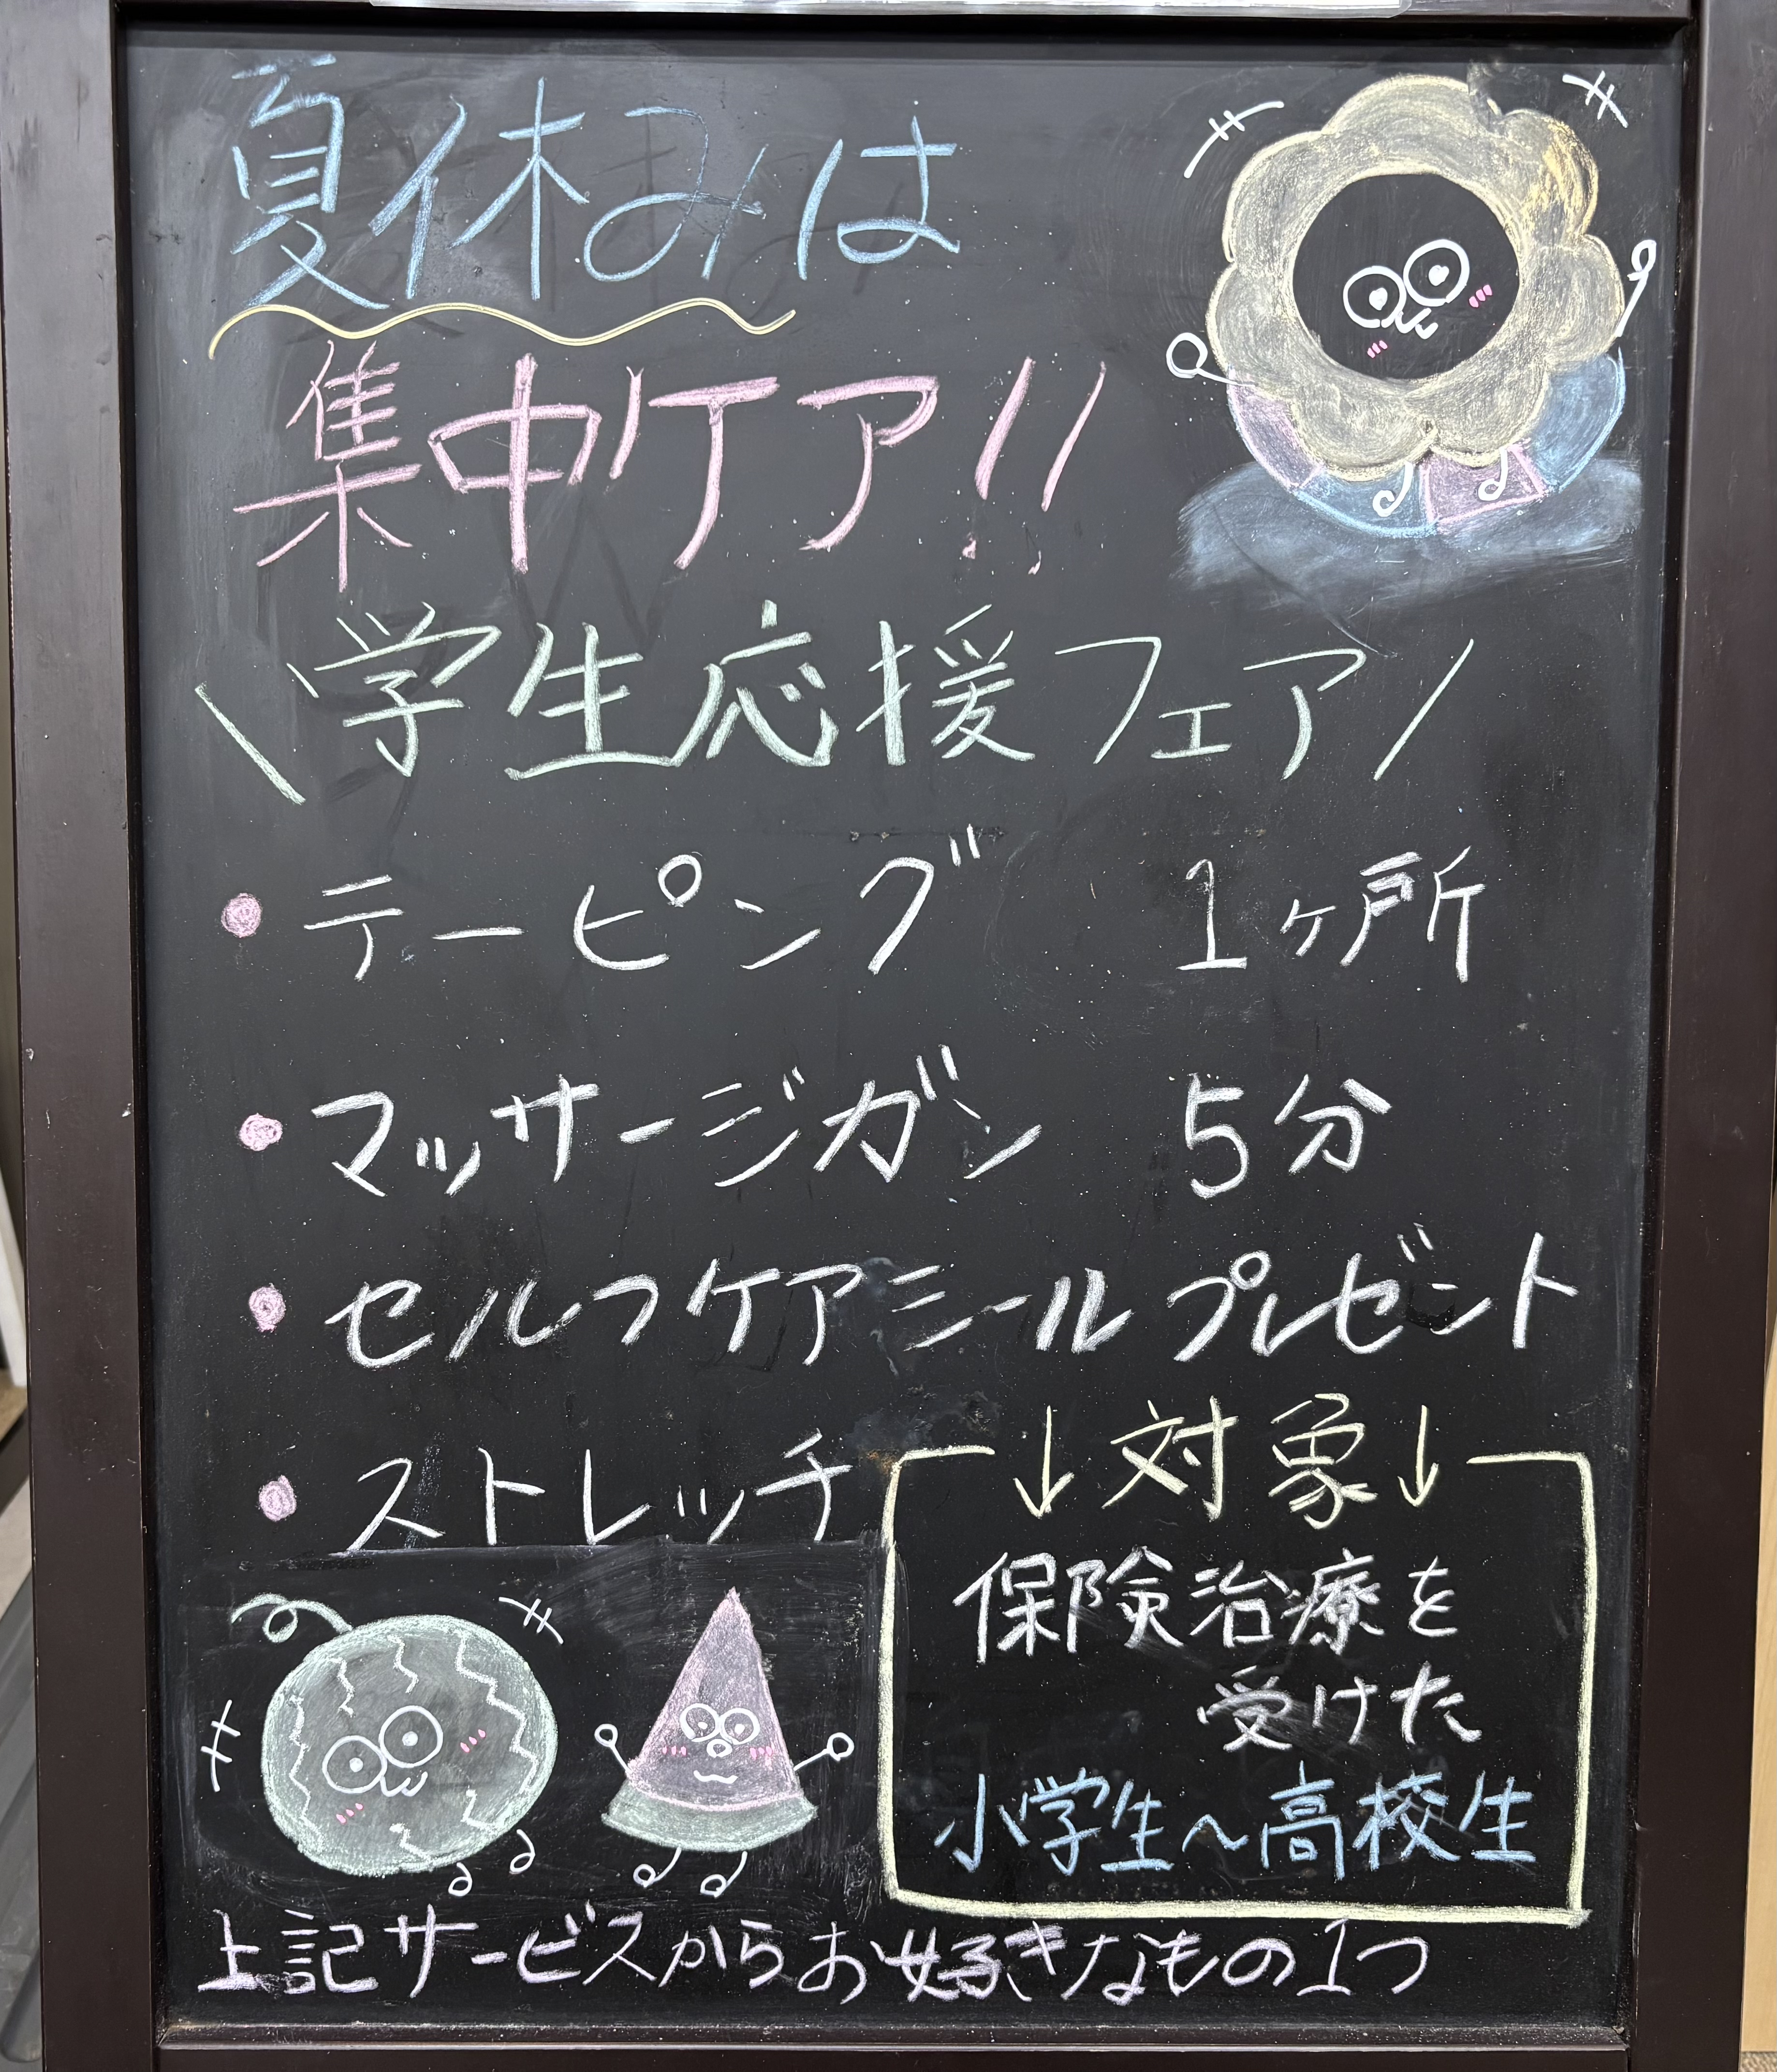 夏休みは
集中ケア!!
\学生応援フェア/
・テーピング 1ヶ所
・マッサージガン 5分
・セルフケアシールプレゼント
・ストレッチ
↓対象↓
保険治療を
受けた
小学生~高校生
上記サービスからお好きなもの1つ